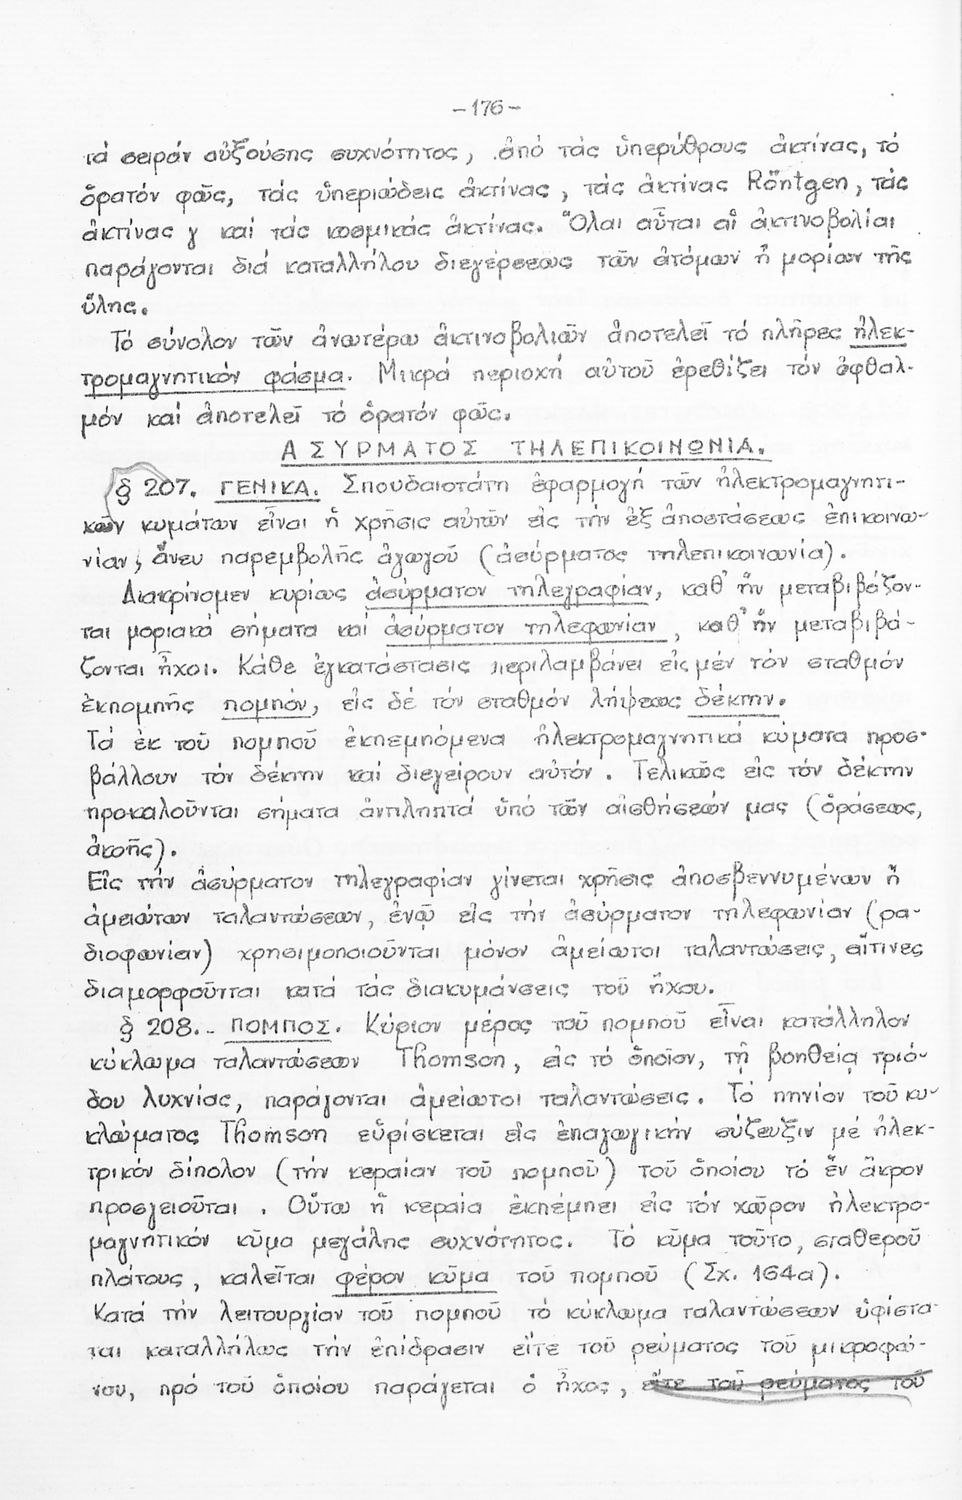 -176-
τά σειράν αὐξούσης συχνότητος, ἀπό τάς ὑπερύθρους ἀκτίνας, τό
ὁρατόν φῶς, τάς ὑπεριώδεις ἀκτίνας, τάς ἀκτίνας Röntgen, τάς
ἀκτίνας γ καί τάς κοσμικάς ἀκτίνας. Ὅλαι αὗται αἱ ἀκτινοβολίαι
παράγονται διά καταλλήλου διεγέρσεως τῶν ἀτόμων ἤ μορίων τῆς
ὕλης.
Τό σύνολον τῶν ἀνωτέρω ἀκτινοβολιῶν ἀποτελεῖ τό πλῆρες ἠλεκ-
τρομαγνητικόν φάσμα. Μικρά περιοχή αὐτοῦ ἐρεθίζει τόν ὀφθαλ-
μόν καί ἀποτελεῖ τό ὁρατόν φῶς.
ΑΣΥΡΜΑΤΟΣ ΤΗΛΕΠΙΚΟΙΝΩΝΙΑ.
§ 207. ΓΕΝΙΚΑ. Σπουδαιοτάτη ἐφαρμογή τῶν ἠλεκτρομαγνητι-
κῶν κυμάτων εἶναι ἡ χρῆσις αὐτῶν εἰς τήν ἐξ ἀποστάσεως ἐπικοινω-
νίαν, ἄνευ παρεμβολῆς ἀγωγοῦ (ἀσύρματος τηλεπικοινωνία).
Διακρίνομεν κυρίως ἀσύρματον τηλεγραφίαν, καθ' ἥν μεταβιβάζον-
ται μορσικά σήματα καί ἀσύρματον τηλεφωνίαν, καθ' ἥν μεταβιβά-
ζονται ἦχοι. Κάθε ἐγκατάστασις περιλαμβάνει εἰς μέν τόν σταθμόν
ἐκπομπῆς πομπόν, εἰς δέ τόν σταθμόν λήψεως δέκτην.
Τά ἐκ τοῦ πομποῦ ἐκπεμπόμενα ἠλεκτρομαγνητικά κύματα προσ-
βάλλουν τόν δέκτην καί διεγείρουν αὐτόν. Τελικῶς εἰς τόν δέκτην
προκαλοῦνται σήματα ἀντιληπτά ὑπό τῶν αἰσθήσεών μας (ὁράσεως,
ἀκοῆς).
Εἰς τήν ἀσύρματον τηλεγραφίαν γίνεται χρῆσις ἀποσβεννυμένων ἤ
ἀμειώτων ταλαντώσεων, ἐνῷ εἰς τήν ἀσύρματον τηλεφωνίαν (ρα-
διοφωνίαν) χρησιμοποιοῦνται μόνον ἀμείωτοι ταλαντώσεις, αἵτινες
διαμορφοῦνται κατά τάς διακυμάνσεις τοῦ ἤχου.
§ 208.- ΠΟΜΠΟΣ. Κύριον μέρος τοῦ πομποῦ εἶναι κατάλληλον
κύκλωμα ταλαντώσεων Thomson, εἰς τό ὁποῖον, τῇ βοηθείᾳ τριό-
δου λυχνίας, παράγονται ἀμείωτοι ταλαντώσεις. Τό πηνίον τοῦ κυ-
κλώματος Thomson εὑρίσκεται εἰς ἐπαγωγικήν σύζευξιν μέ ἠλεκ-
τρικόν δίπολον (τήν κεραίαν τοῦ πομποῦ) τοῦ ὁποίου τό ἕν ἄκρον
προσγειοῦται. Οὕτω ἡ κεραία ἐκπέμπει εἰς τόν χῶρον ἠλεκτρο-
μαγνητικόν κῦμα μεγάλης συχνότητος. Τό κῦμα τοῦτο, σταθεροῦ
πλάτους, καλεῖται φέρον κῦμα τοῦ πομποῦ (Σχ. 164α).
Κατά τήν λειτουργίαν τοῦ πομποῦ τό κύκλωμα ταλαντώσεων ὑφίστα-
ται καταλλήλως τήν ἐπίδρασιν εἴτε τοῦ ρεύματος τοῦ μικροφώ-
νου, πρό τοῦ ὁποίου παράγεται ὁ ἦχος, εἴτε τοῦ ρεύματος τοῦ